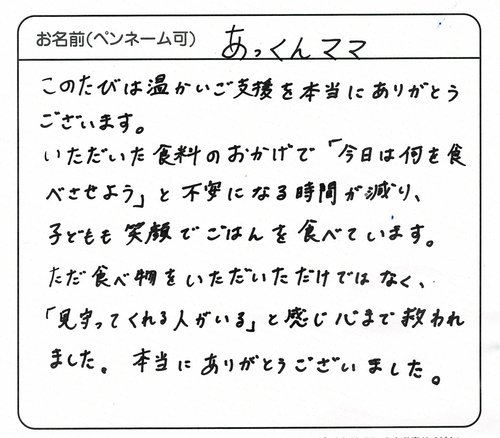 お名前(ペンネーム可) あっくんママ
このたびは温かいご支援を本当にありがとう
ございます。
いただいた食料のおかげで「今日は何を食
べさせよう」と不安になる時間が減り、
子どもも笑顔でごはんを食べています。
ただ食べ物をいただいただけではなく、
「見守ってくれる人がいる」と感じ心まで救われ
ました。本当にありがとうございました。